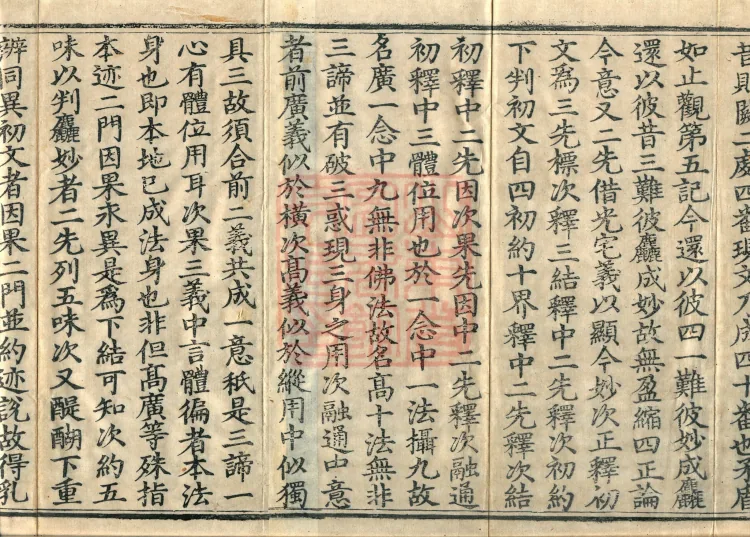 昔則闕二處四番現文乃成四十番也又眉
如止觀第五記今還以彼四一難彼妙成麤
還以彼昔三難彼麤成妙故無盈縮四正論
今意又二先借光宅義以顯今妙次正釋初
文為三先標次釋三結釋中二先釋次初約
下判初文自四初約十界釋中二先釋次結
初釋中二先因次果先因中二先釋次融通
初釋中三體位用也於一念中一法攝九故
名廣一念中九無非佛法故名高十法無非
三諦並有破三惑現三身之用次融通中意
者前廣義似於橫次高義似於縱用中似獨
具三故須合前二義共成一意秖是三諦一
心有體位用耳次果三義中言體徧者本法
身也即本地已成法身也非但高廣等殊指
本迹二門因果永異是為下結可知次約五
味以判麤妙者二先列五味次又醍醐下重
辨同異初文者因果二門並約迹說故得乳